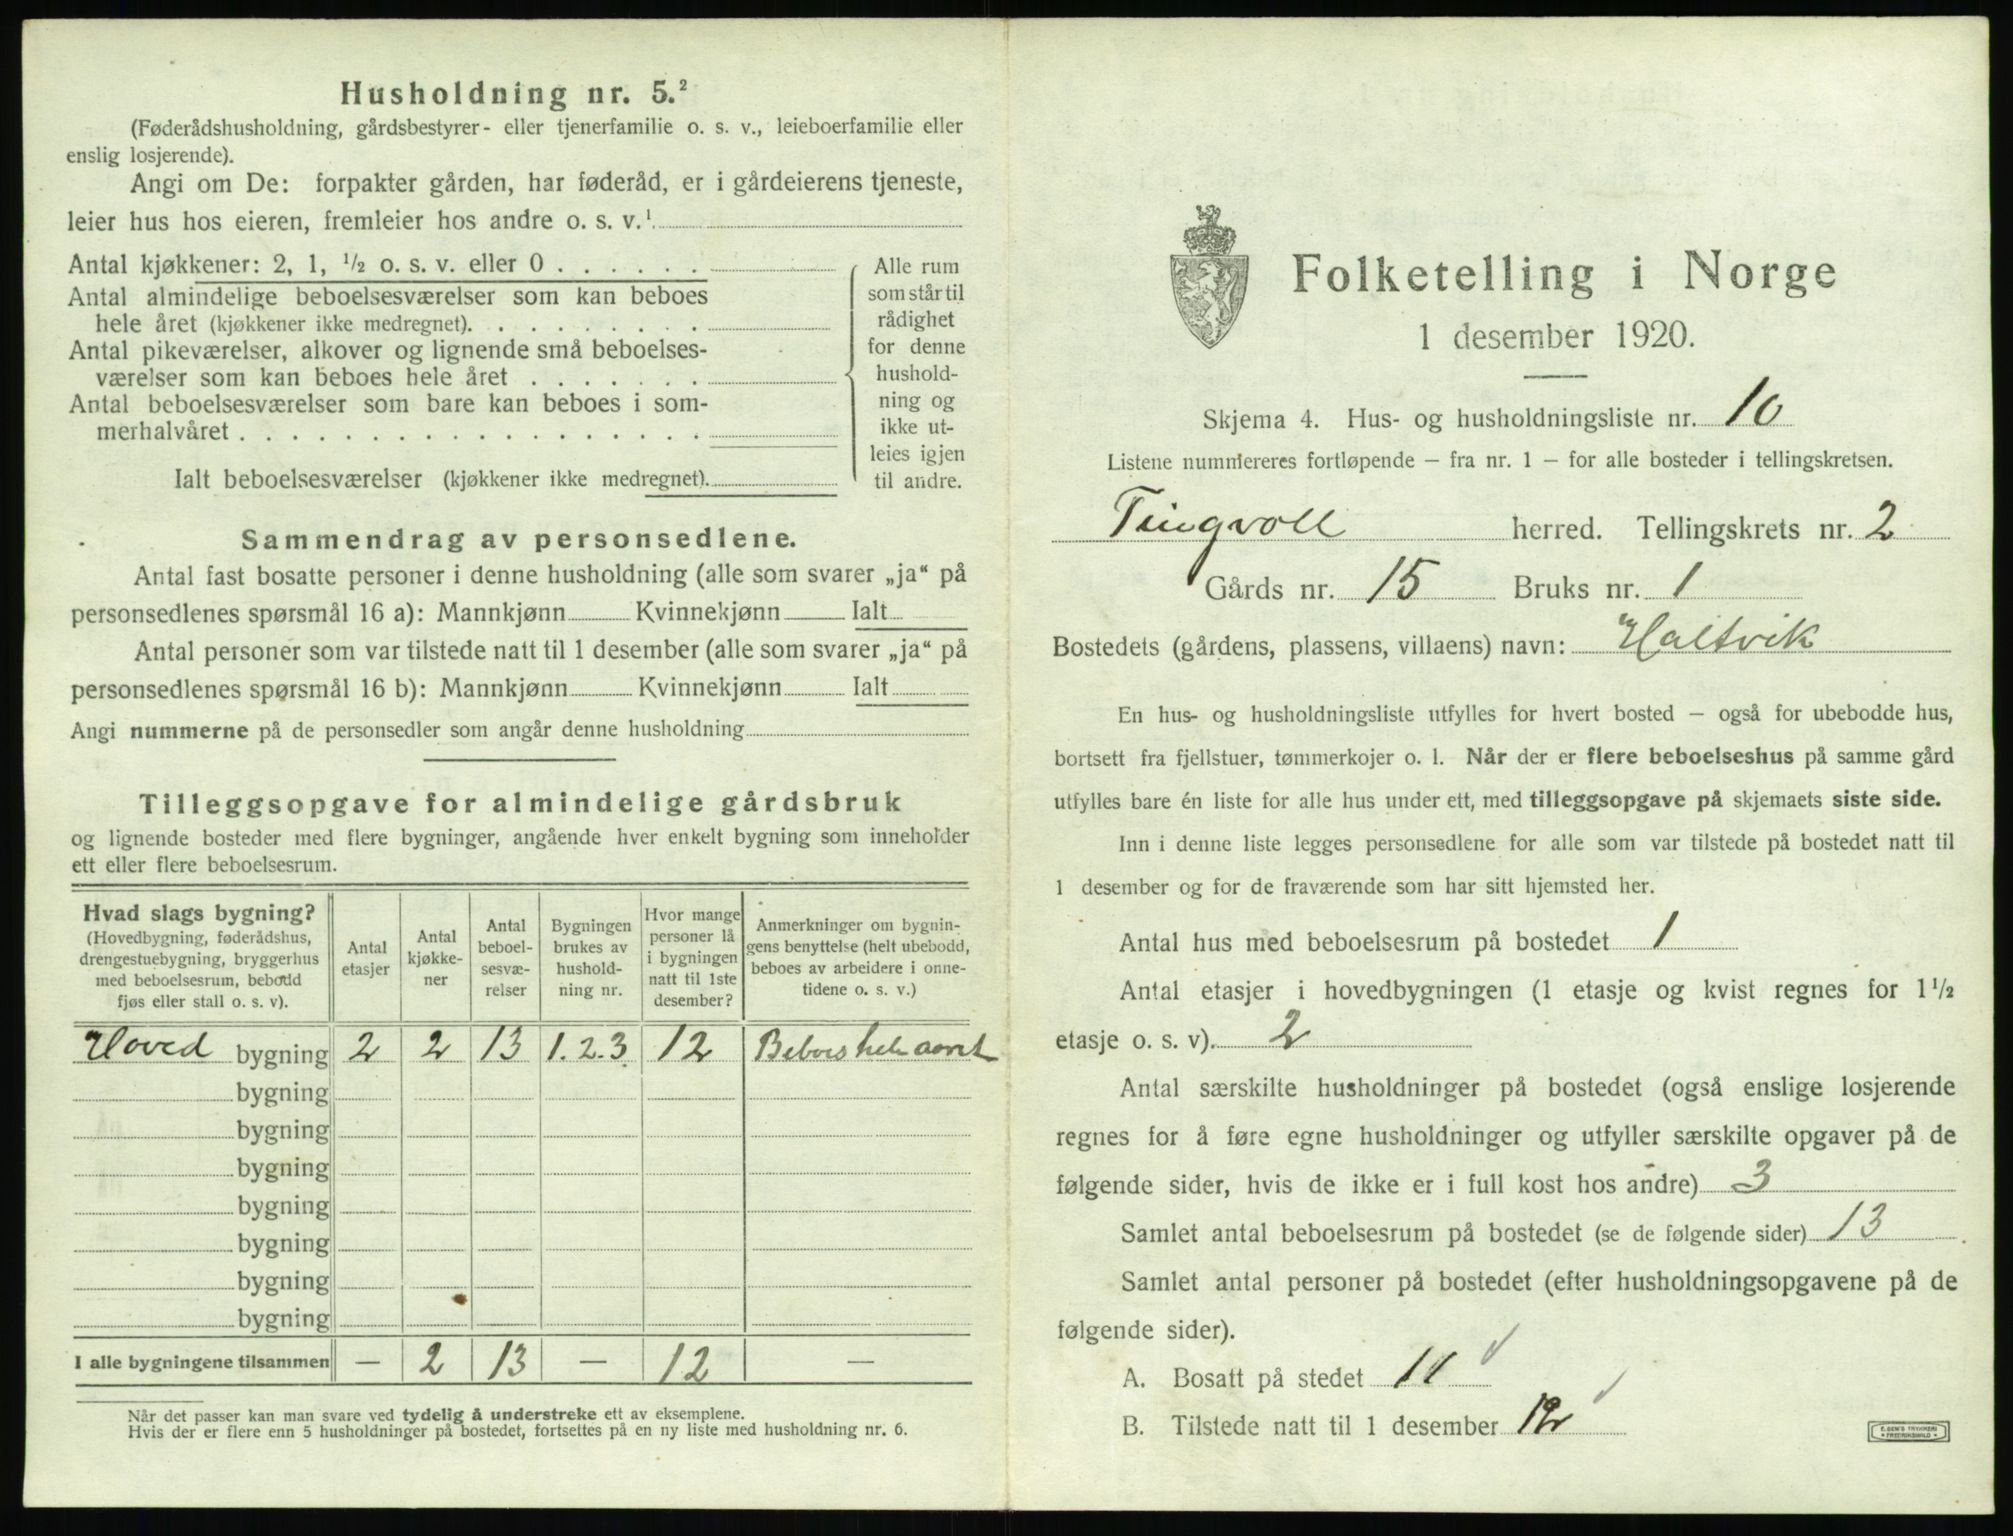 Husholdning nr. 5.²
(Føderådshusholdning, gårdsbestyrer- eller tjenerfamilie o. s. v., leieboerfamilie eller
enslig losjerende).
Angi om De: forpakter gården, har føderåd, er i gårdeierens tjeneste,
leier hus hos eieren, fremleier hos andre o. s. v.¹
Antal kjøkkener: 2, 1, ½ o. s. v. eller 0 . . . . . .
Antal almindelige beboelsesværelser som kan beboes
hele året (kjøkkener ikke medregnet). . . . . . . . .
Antal pikeværelser, alkover og lignende små beboelses-
værelser som kan beboes hele året . . . . . . .
Antal beboelsesværelser som bare kan beboes i som-
merhalvåret . . . . . . . . . . . . . . . . . .
Ialt beboelsesværelser (kjøkkener ikke medregnet).
Alle rum
som står til
rådighet
for denne
hushold-
ning og
ikke ut-
leies igjen
til andre.
Sammendrag av personsedlene.
Antal fast bosatte personer i denne husholdning (alle som svarer „ja“ på
personsedlenes spørsmål 16 a): Mannkjønn Kvinnekjønn Ialt
Antal personer som var tilstede natt til 1 desember (alle som svarer „ja“ på
personsedlenes spørsmål 16 b): Mannkjønn Kvinnekjønn Ialt
Angi nummerne på de personsedler som angår denne husholdning
Tilleggsopgave for almindelige gårdsbruk
og lignende bosteder med flere bygninger, angående hver enkelt bygning som inneholder
ett eller flere beboelsesrum.
Hvad slags bygning?
(Hovedbygning, føderådshus,
drengestuebygning, bryggerhus
med beboelsesrum, bebodd
fjøs eller stall o. s. v).
Antal
etasjer
Antal
kjøkke-
ner
Antal
beboel-
sesvæ-
relser
Bygningen
brukes av
hushold-
ning nr.
Hvor mange
personer lå
i bygningen
natt til 1ste
desember?
Anmerkninger om bygnin-
gens benyttelse (helt ubebodd,
beboes av arbeidere i onne-
tidene o. s. v.)
Hoved bygning 2 2 13 1.2.3 12 Beboes hele aaret
bygning
bygning
bygning
bygning
bygning
bygning
bygning
I alle bygningene tilsammen — 2 13 — 12 —
Når det passer kan man svare ved tydelig å understreke ett av eksemplene.
Hvis der er flere enn 5 husholdninger på bostedet, fortsettes på en ny liste med husholdning nr. 6.
Folketelling i Norge
1 desember 1920.
Skjema 4. Hus- og husholdningsliste nr. 10
Listene nummereres fortløpende – fra nr. 1 – for alle bosteder i tellingskretsen.
Tingvoll herred. Tellingskrets nr. 2
Gårds nr. 15 Bruks nr. 1
Bostedets (gårdens, plassens, villaens) navn: Haltvik
En hus- og husholdningsliste utfylles for hvert bosted – også for ubebodde hus,
bortsett fra fjellstuer, tømmerkojer o. l. Når der er flere beboelseshus på samme gård
utfylles bare én liste for alle hus under ett, med tilleggsopgave på skjemaets siste side.
Inn i denne liste legges personsedlene for alle som var tilstede på bostedet natt til
1 desember og for de fraværende som har sitt hjemsted her.
Antal hus med beboelsesrum på bostedet 1
Antal etasjer i hovedbygningen (1 etasje og kvist regnes for 1½
etasje o. s. v). 2
Antal særskilte husholdninger på bostedet (også enslige losjerende
regnes for å føre egne husholdninger og utfyller særskilte opgaver på de
følgende sider, hvis de ikke er i full kost hos andre) 3
Samlet antal beboelsesrum på bostedet (se de følgende sider) 13
Samlet antal personer på bostedet (efter husholdningsopgavene på de
følgende sider).
A. Bosatt på stedet 11
B. Tilstede natt til 1 desember 12